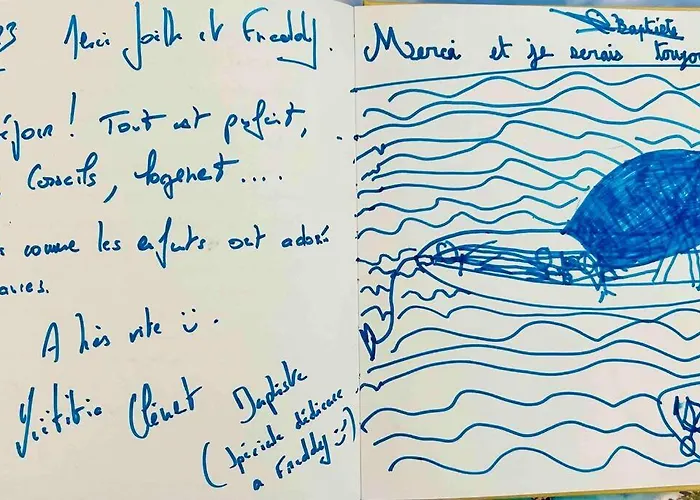 23 Merci Joëlle et Freddy.
éjour ! Tout est parfait,
Conseils, logement....
comme les enfants ont adoré
A très vite ü.
Clément Baptiste
(spéciale dédicace
a Freddy ü)
Baptiste
Merci et je serais toujou